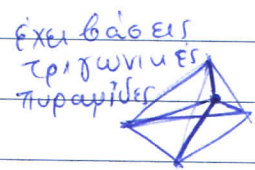 έχει βάσεις
τριγωνικές
πυραμίδες